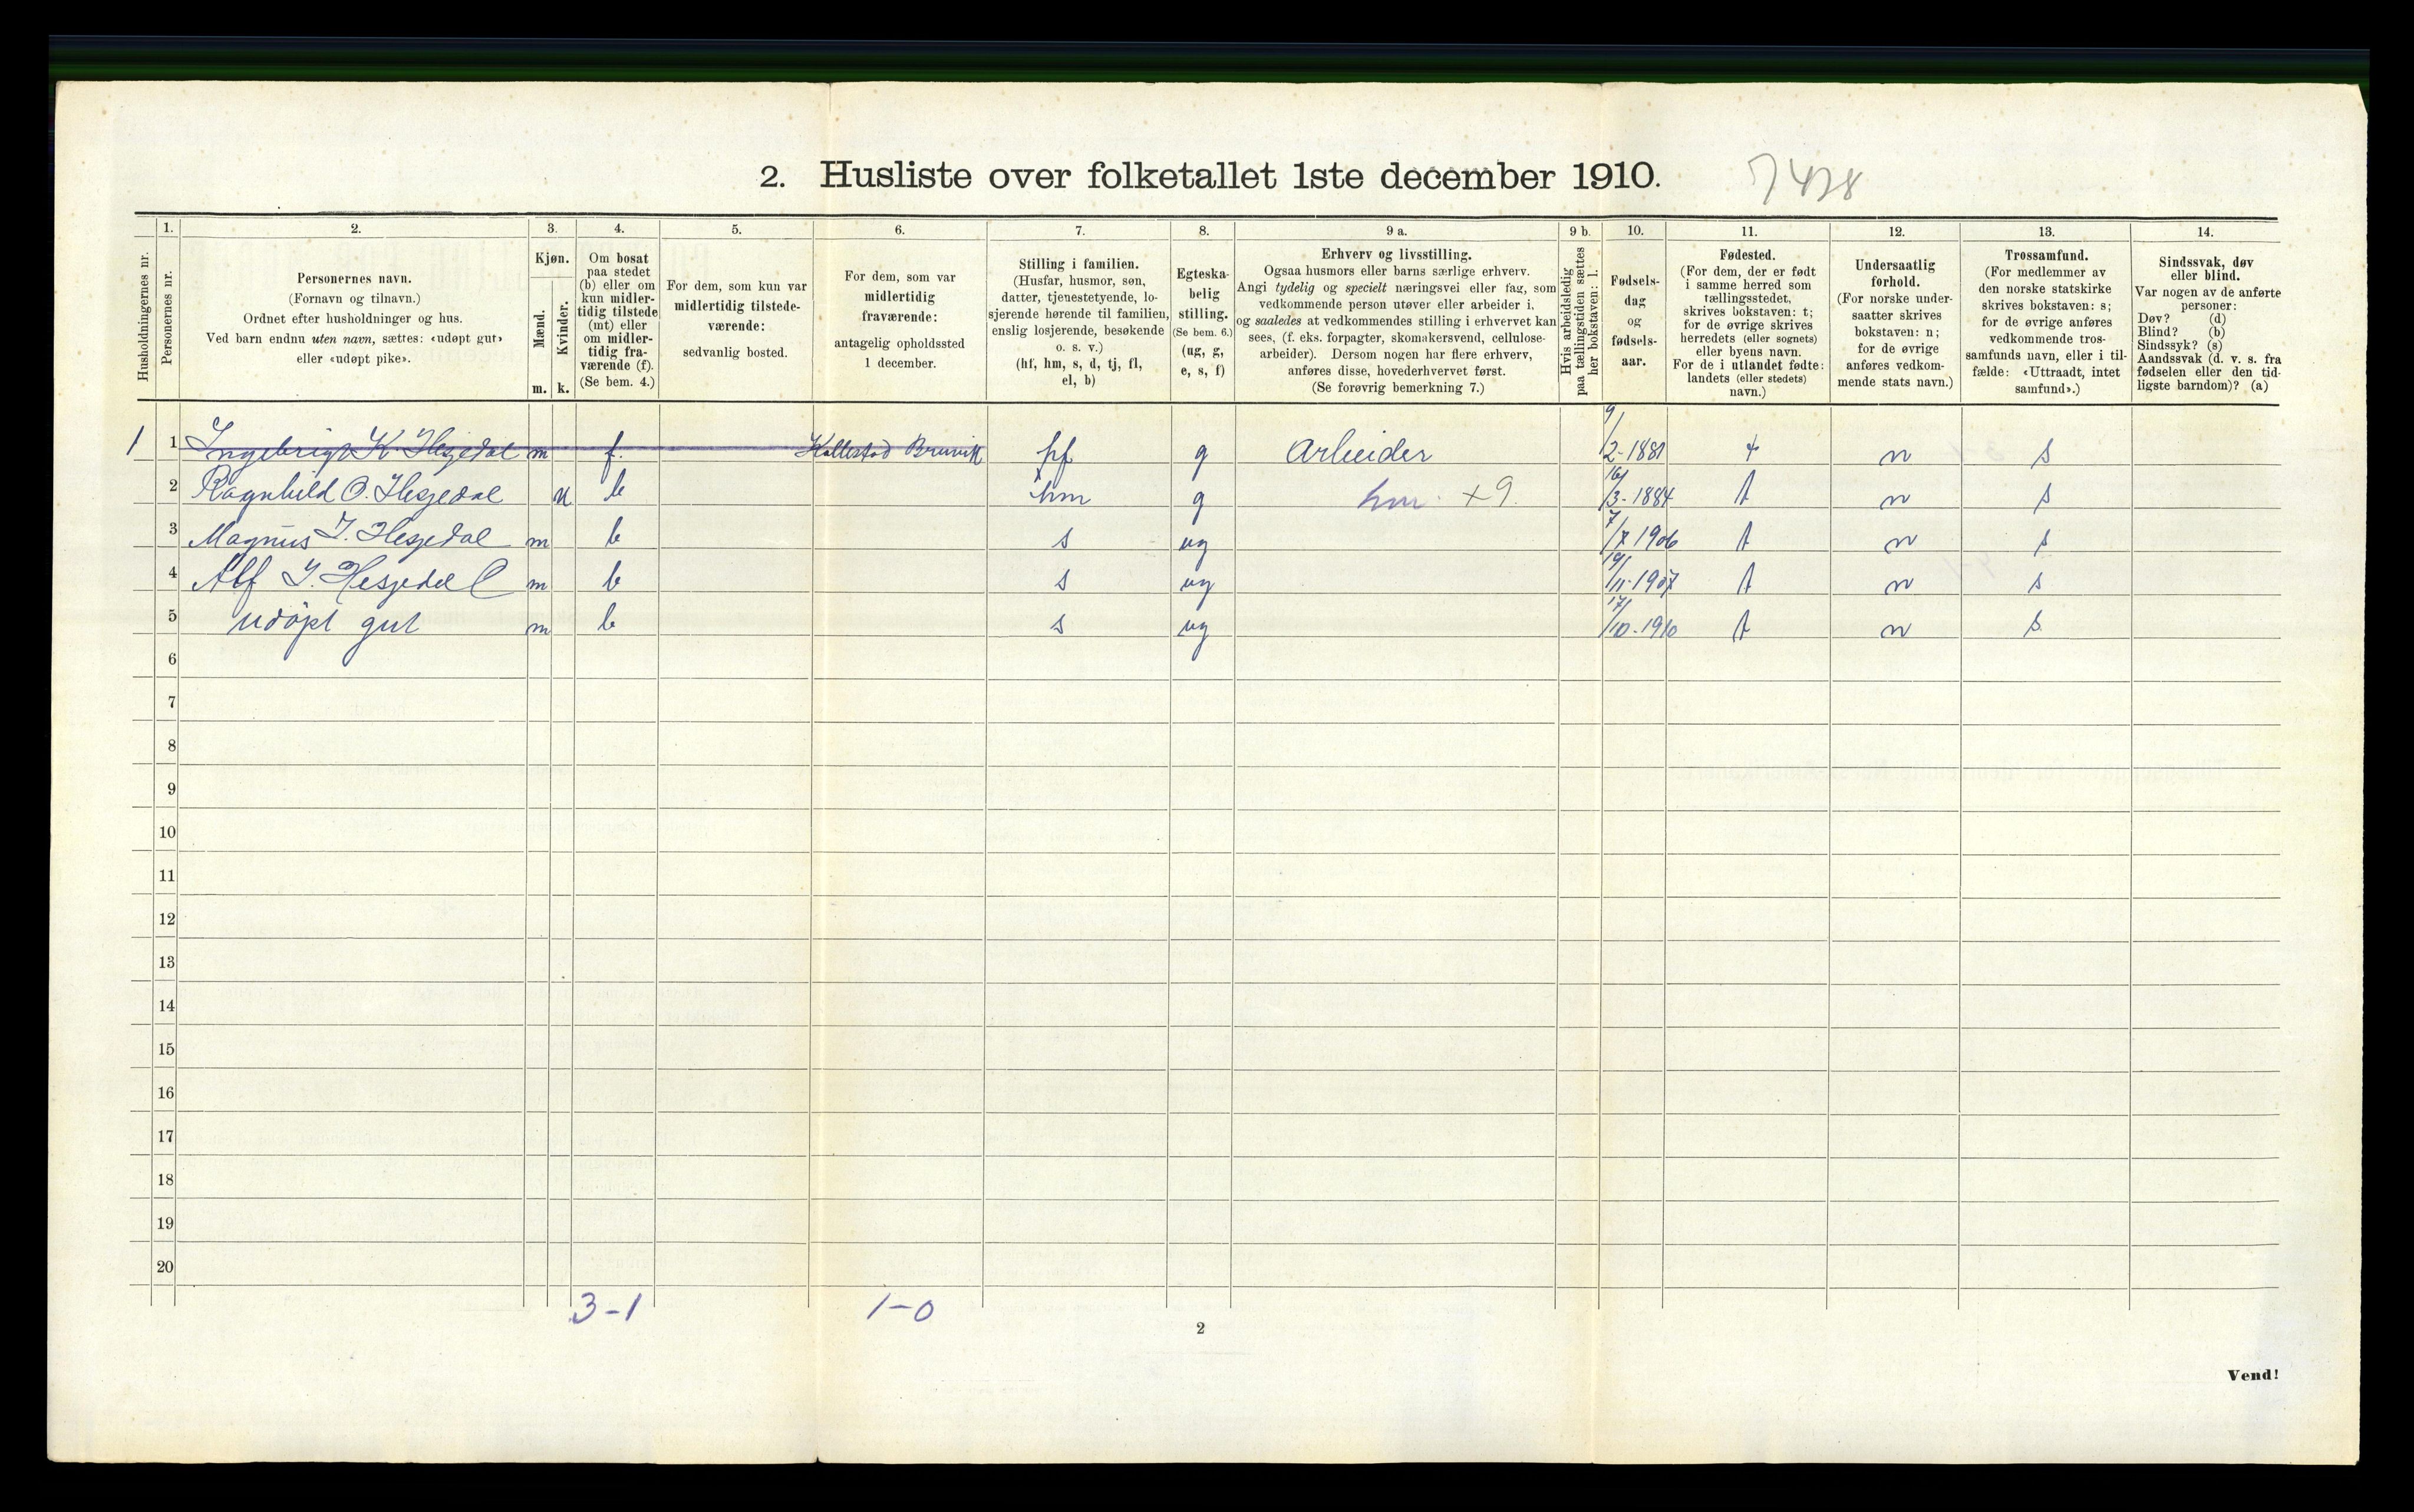 2. Husliste over folketallet 1ste december 1910.
7478
Husholdningernes nr.
1.
Personernes nr.
2.
Personernes navn.
(Fornavn og tilnavn.)
Ordnet efter husholdninger og hus.
Ved barn endnu uten navn, sættes: «udøpt gut»
eller «udøpt pike».
3.
Kjøn.
Mænd.
Kvinder.
m. k.
4.
Om bosat
paa stedet
(b) eller om
kun midler-
tidig tilstede
(mt) eller
om midler-
tidig fra-
værende (f).
(Se bem. 4.)
5.
For dem, som kun var
midlertidig tilstede-
værende:
sedvanlig bosted.
6.
For dem, som var
midlertidig
fraværende:
antagelig opholdssted
1 december.
7.
Stilling i familien.
(Husfar, husmor, søn,
datter, tjenestetyende, lo-
sjerende hørende til familien,
enslig losjerende, besøkende
o. s. v.)
(hf, hm, s, d, tj, fl,
el, b)
8.
Egteska-
belig
stilling.
(Se bem. 6.)
(ug, g,
e, s, f)
9 a.
Erhverv og livsstilling.
Ogsaa husmors eller barns særlige erhverv.
Angi tydelig og specielt næringsvei eller fag, som
vedkommende person utøver eller arbeider i,
og saaledes at vedkommendes stilling i erhvervet kan
sees, (f. eks. forpagter, skomakersvend, cellulose-
arbeider). Dersom nogen har flere erhverv,
anføres disse, hovederhvervet først.
(Se forøvrig bemerkning 7.)
9 b.
Hvis arbeidsledig
paa tællingstiden sættes
her bokstaven: l.
10.
Fødsels-
dag
og
fødsels-
aar.
11.
Fødested.
(For dem, der er født
i samme herred som
tællingsstedet,
skrives bokstaven: t;
for de øvrige skrives
herredets (eller sognets)
eller byens navn.
For de i utlandet fødte:
landets (eller stedets)
navn.)
12.
Undersaatlig
forhold.
(For norske under-
saatter skrives
bokstaven: n;
for de øvrige
anføres vedkom-
mende stats navn.)
13.
Trossamfund.
(For medlemmer av
den norske statskirke
skrives bokstaven: s;
for de øvrige anføres
vedkommende tros-
samfunds navn, eller i til-
fælde: «Uttraadt, intet
samfund».)
14.
Sindssvak, døv
eller blind.
Var nogen av de anførte
personer:
Døv? (d)
Blind? (b)
Sindssyk? (s)
Aandssvak (d. v. s. fra
fødselen eller den tid-
ligste barndom)? (a)
1 1 Ingebrigt K. Hesjedal m f. Kallestad Bruvik hf g Arbeider 9/2-1881 t n s
2 Ragnhild O. Hesjedal k b hm g hm. +9. 16/3-1884 t n s
3 Magnus I. Hesjedal m b s ug 7/7 1906 t n s
4 Alf I. Hesjedal m b s ug 19/11-1907 t n s
5 udøpt gut m b s ug 17/10-1910 t n s
6
7
8
9
10
11
12
13
14
15
16
17
18
19
20
3-1 1-0
2
Vend!